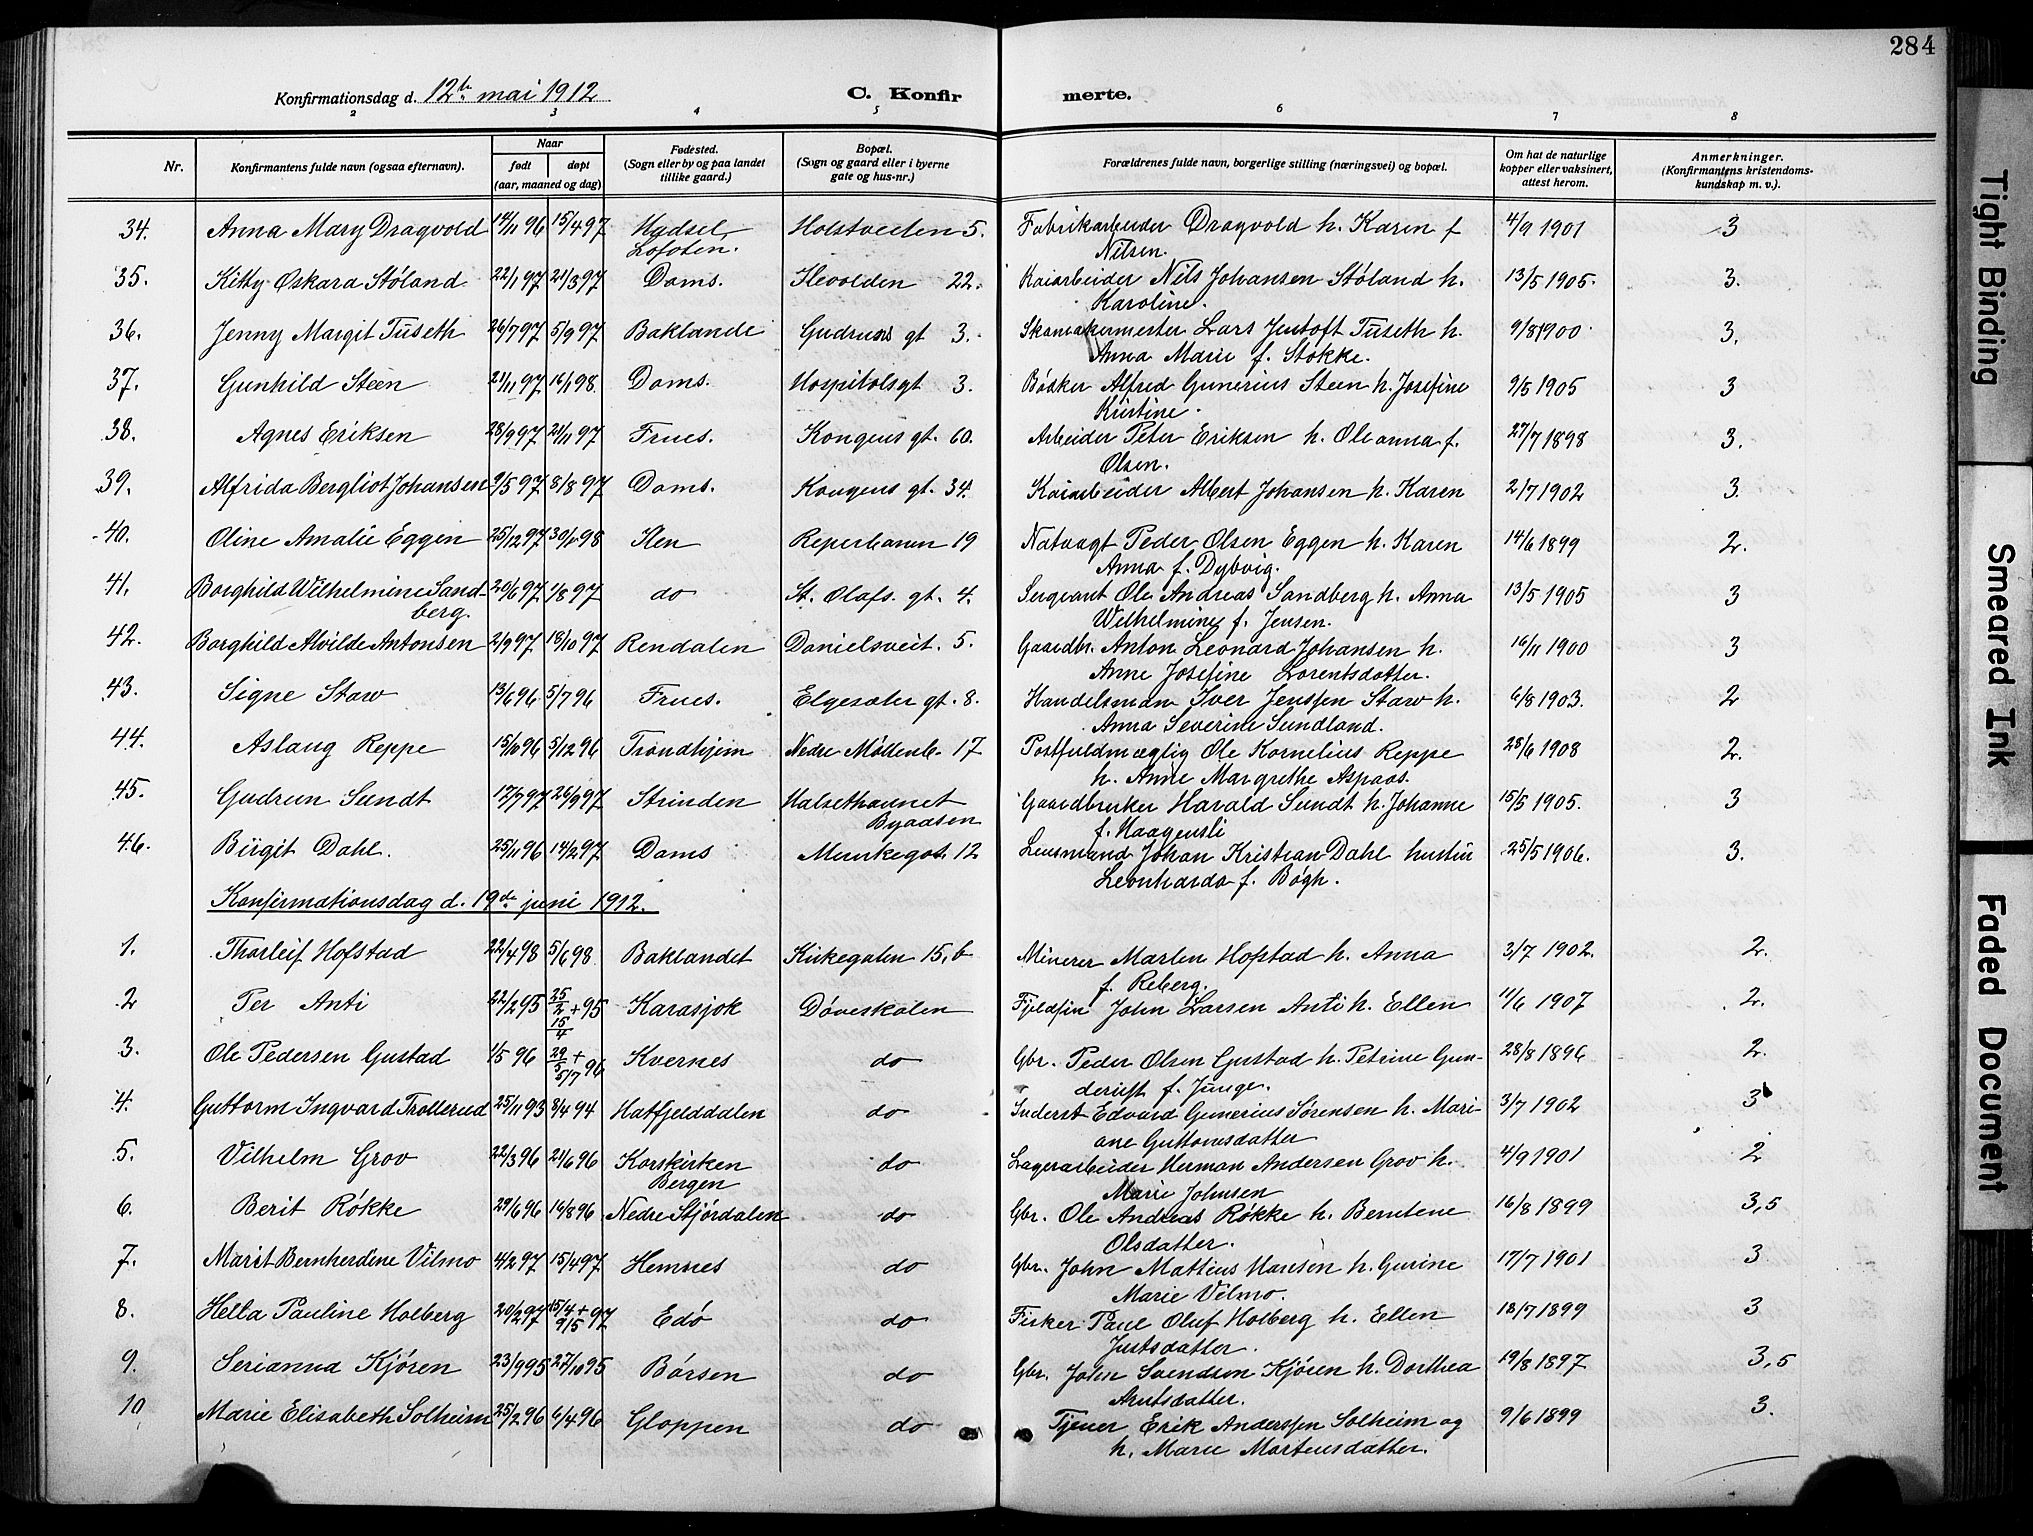 284
Konfirmationsdag d. 12te mai 1912 C. Konfirmerte.
2 3 4 5 6 7 8
Nr. Konfirmantens fulde navn (ogsaa efternavn). Naar født døpt (aar, maaned og dag) Fødested. (Sogn eller by og paa landet tillike gaard.) Bopæl. (Sogn og gaard eller i byerne gate og hus-nr.) Forældrenes fulde navn, borgerlige stilling (næringsvei) og bopæl. Om hat de naturlige kopper eller vaksinert, attest herom. Anmerkninger. (Konfirmantens kristendomskundskap m. v.).
34. Anna Mary Dragvold 14/11 96 15/4 97 Hadsel Lofoten. Holstveiten 5. Fabrikarbeider Dragvold h. Karen f 4/9 1901 3
Nilsen.
35. Kitty Oskara Støland 22/1 97 21/3 97 Doms. Ilevolden 22. Kaiarbeider Nils Johansen Støland h. 13/5 1905. 3.
Karoline.
36. Jenny Margit Tuseth 26/7 97 5/9 97 Baklande Gudruns gt 3. Skomakermester Lars Justoft Tuseth h. 9/8 1900 3.
Anna Marie f. Stokke.
37. Gunhild Steen 21/11 97 16/1 98. Doms. Hospitalsgt 3. Bøsker Alfred Gunerius Steen h. Josefine 9/5 1905 3
Kristine.
38. Agnes Eriksen 28/9 97 21/11 97 Frues. Kongens gt. 60. Arbeider Peter Eriksen h. Oleanna f. 27/7 1898 3.
Olsen.
39. Alfrida Bergliot Johansen 9/5 97 8/8 97 Doms. Kongens gt. 34. Kaiarbeider Albert Johansen h. Karen 2/7 1902 3.
40. Oline Amalie Eggen 25/12 97 30/1 98 Ilen Reperbanen 19 Natvagt Peder Olsen Eggen h. Karen 14/6 1899 2.
Anna f. Dybvig.
41. Borghild Wilhelmine Sand- 20/6 97 1/8 97 do St. Olafs. gt. 4. Sergeant Ole Andreas Sandberg h. Anna 13/5 1905 3
berg. Wilhelmine f. Jensen.
42. Borghild Alvilde Antonsen 2/9 97 18/10 97 Rendalen Danielsveit. 5. Gaardbr. Anton Leonard Johansen h. 16/11 1900 3
Anne Josefine Lorentsdatter.
43. Signe Staw 13/6 96 5/7 96 Frues. Elgesæter gt. 8. Handelsmdn Iver Jenssen Staw h. 6/8 1903. 2
Anna Severine Sundland.
44. Aslaug Reppe 15/10 96 5/12 96 Trondhjem Nedre Møllenb. 17 Postfuldmægtig Ole Kornelius Reppe 28/6 1908 2.
h. Anne Margrethe Aspaas.
45. Gudrun Sundt 17/7 97 26/9 97 Strinden Halsethaunet Gaardbruker Harald Sundt h. Johanne 15/5 1905. 3
Byaasen f. Haagensli
46. Birgit Dahl. 25/11 96 14/2 97 Doms Munkegat. 12 Lensmand Johan Kristian Dahl hustru 25/5 1906. 3.
Leonharda f. Bøgh.
Konfirmationsdag d. 19de juni 1912.
1. Thorleif Hofstad 22/4 98 5/6 98. Baklandet Kirkegaten 15, b Minerer Marten Hofstad h. Anna 3/7 1902. 2.
f. Reberg.
2 Per Anti 22/2 95 25/2 + 15/4 95 Karasjok Døveskolen Fjeldfin John Larsen Anti h. Ellen 11/6 1907 2.
3. Ole Pedersen Gustad 1/5 96 29/5 + 5/7 96 Kvernes do Gbr. Peder Olsen Gustad h. Petrine Gun- 28/8 1896 2.
f. Junge.
4. Guttorm Ingvard Trollerud 25/11 93 8/4 94 Hatfjelddalen do Inderst Edvard Gunerius Sørensen h. Mari- 3/7 1902 3
ane Guttormsdatter
5. Vilhelm Grov 22/3 96 21/6 96 Korskirken do Lagerarbeider Herman Andersen Grov h. 4/9 1901 2
Bergen Marie Johnsen
6. Berit Røkke 29/6 96 16/8 96 Nedre Stjørdalen do Gbr. Ole Andreas Røkke h. Berntene 16/8 1899 3,5
Olsdatter.
7. Marit Bernherdine Vilmo 4/2 97 15/4 97 Hemnes do Gbr. John Matteus Hansen h. Gurine 17/7 1901 3
Marie Vilmo.
8. Hella Pauline Holberg 20/2 97 15/4 + 9/5 97 Edø do Fisker Paul Oluf Holberg h. Ellen 18/7 1899 3
Justsdatter.
9. Serianna Kjøren 23/9 95 27/10 95 Børsen do Gbr. John Svendsen Kjøren h. Dorthea 19/8 1897 3,5
Arntsdatter.
10 Marie Elisabeth Solheim 25/2 96 6/4 96 Gloppen do Tjener Erik Anderssen Solheim og 9/6 1899 3.
h. Marie Martensdatter.
Tight Binding
Smeared Ink
Faded Document